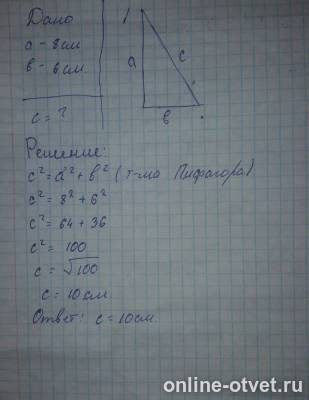 Дано
a - 8 см
в - 6 см
c = ?
a
c
в
Решение:
c² = a² + в² (т-ма Пифагора)
c² = 8² + 6²
c² = 64 + 36
c² = 100
c = √100
c = 10 см
Ответ: c = 10 см
online-otvet.ru